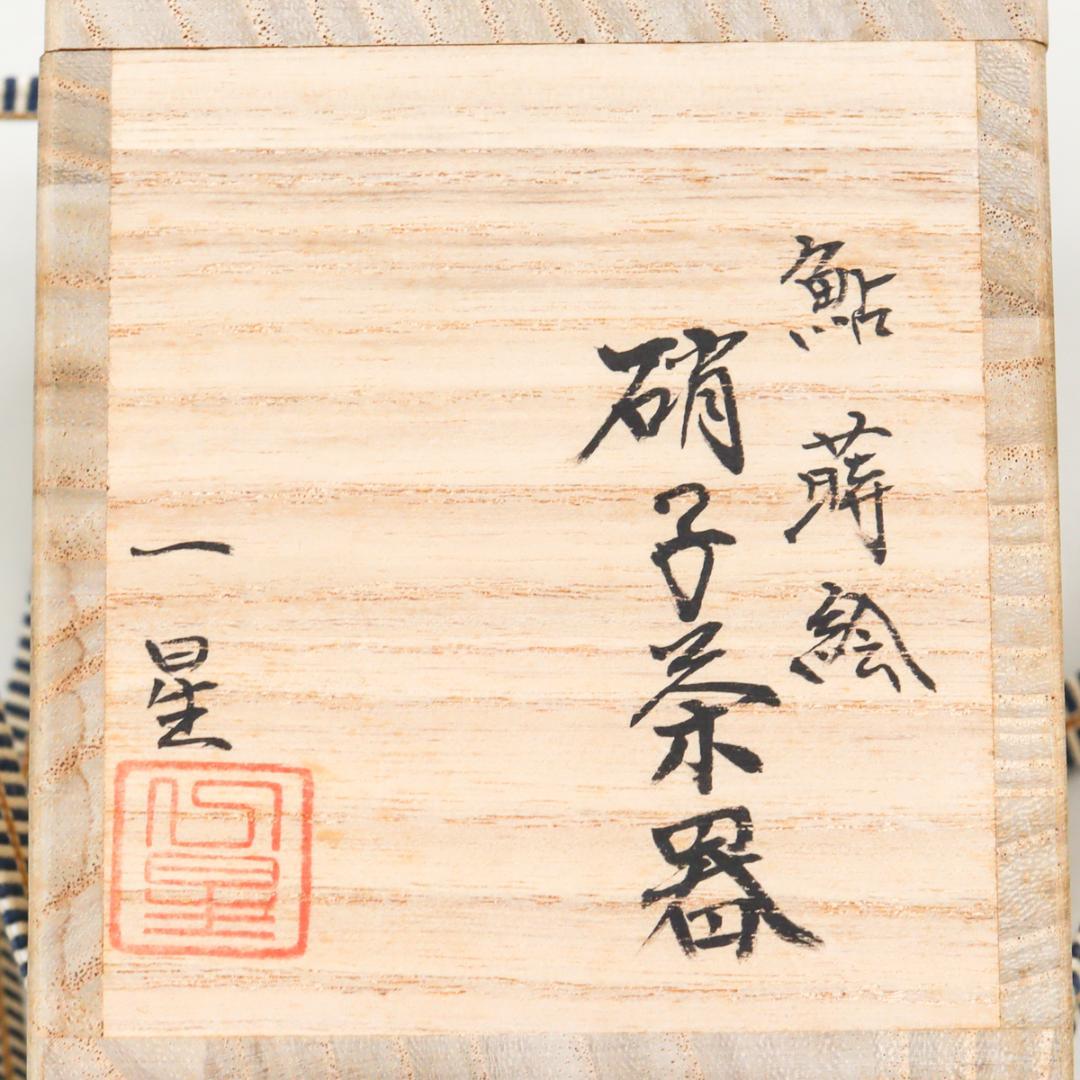 鮎蒔絵
硝子茶器
一星